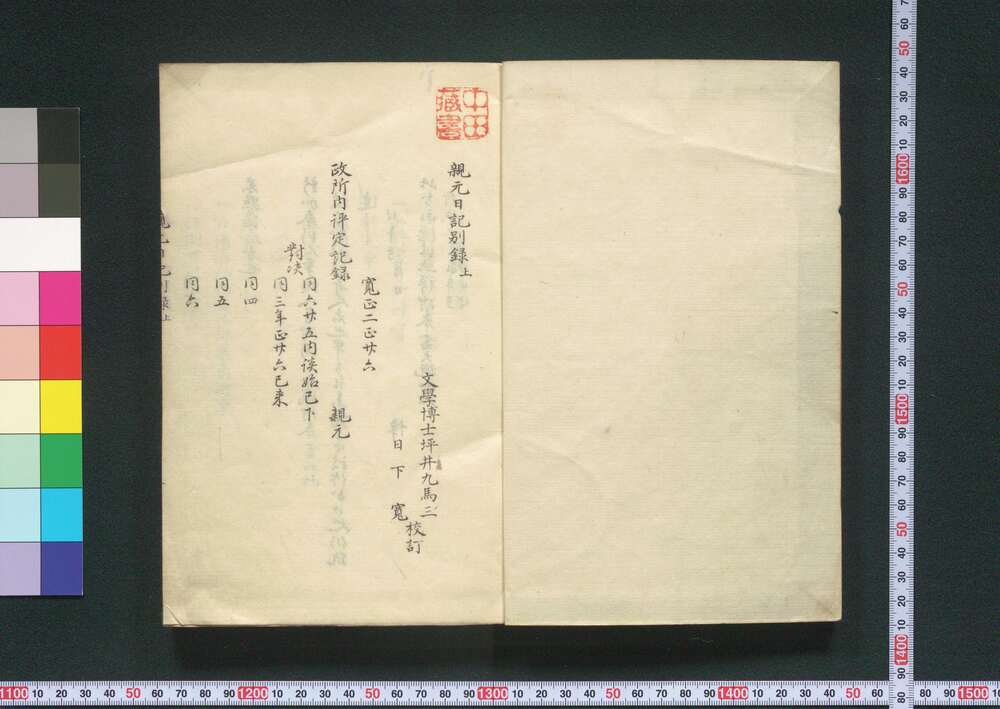 中田
蔵書
親元日記別録上
文學博士坪井九馬三
日下寬
校訂
寬正二正廿六
政所内評定記録 親元
同六廿五内談始已下
對决
同三年正廿六已来
同四
同五
同六
親元日記別録上
1100 10 20 30 40 50 60 70 80 90 1200 10 20 30 40 50 60 70 80 90 1300 10 20 30 40 50 60 70 80 90 1400 10 20 30 40 50 60
80 90 1500 10
70 60 50 40 30 20 10 1600 90 80 70 60 50 40 30 20 10 1500 90 80 70 60 50 40 30 20 10 1400 90 80